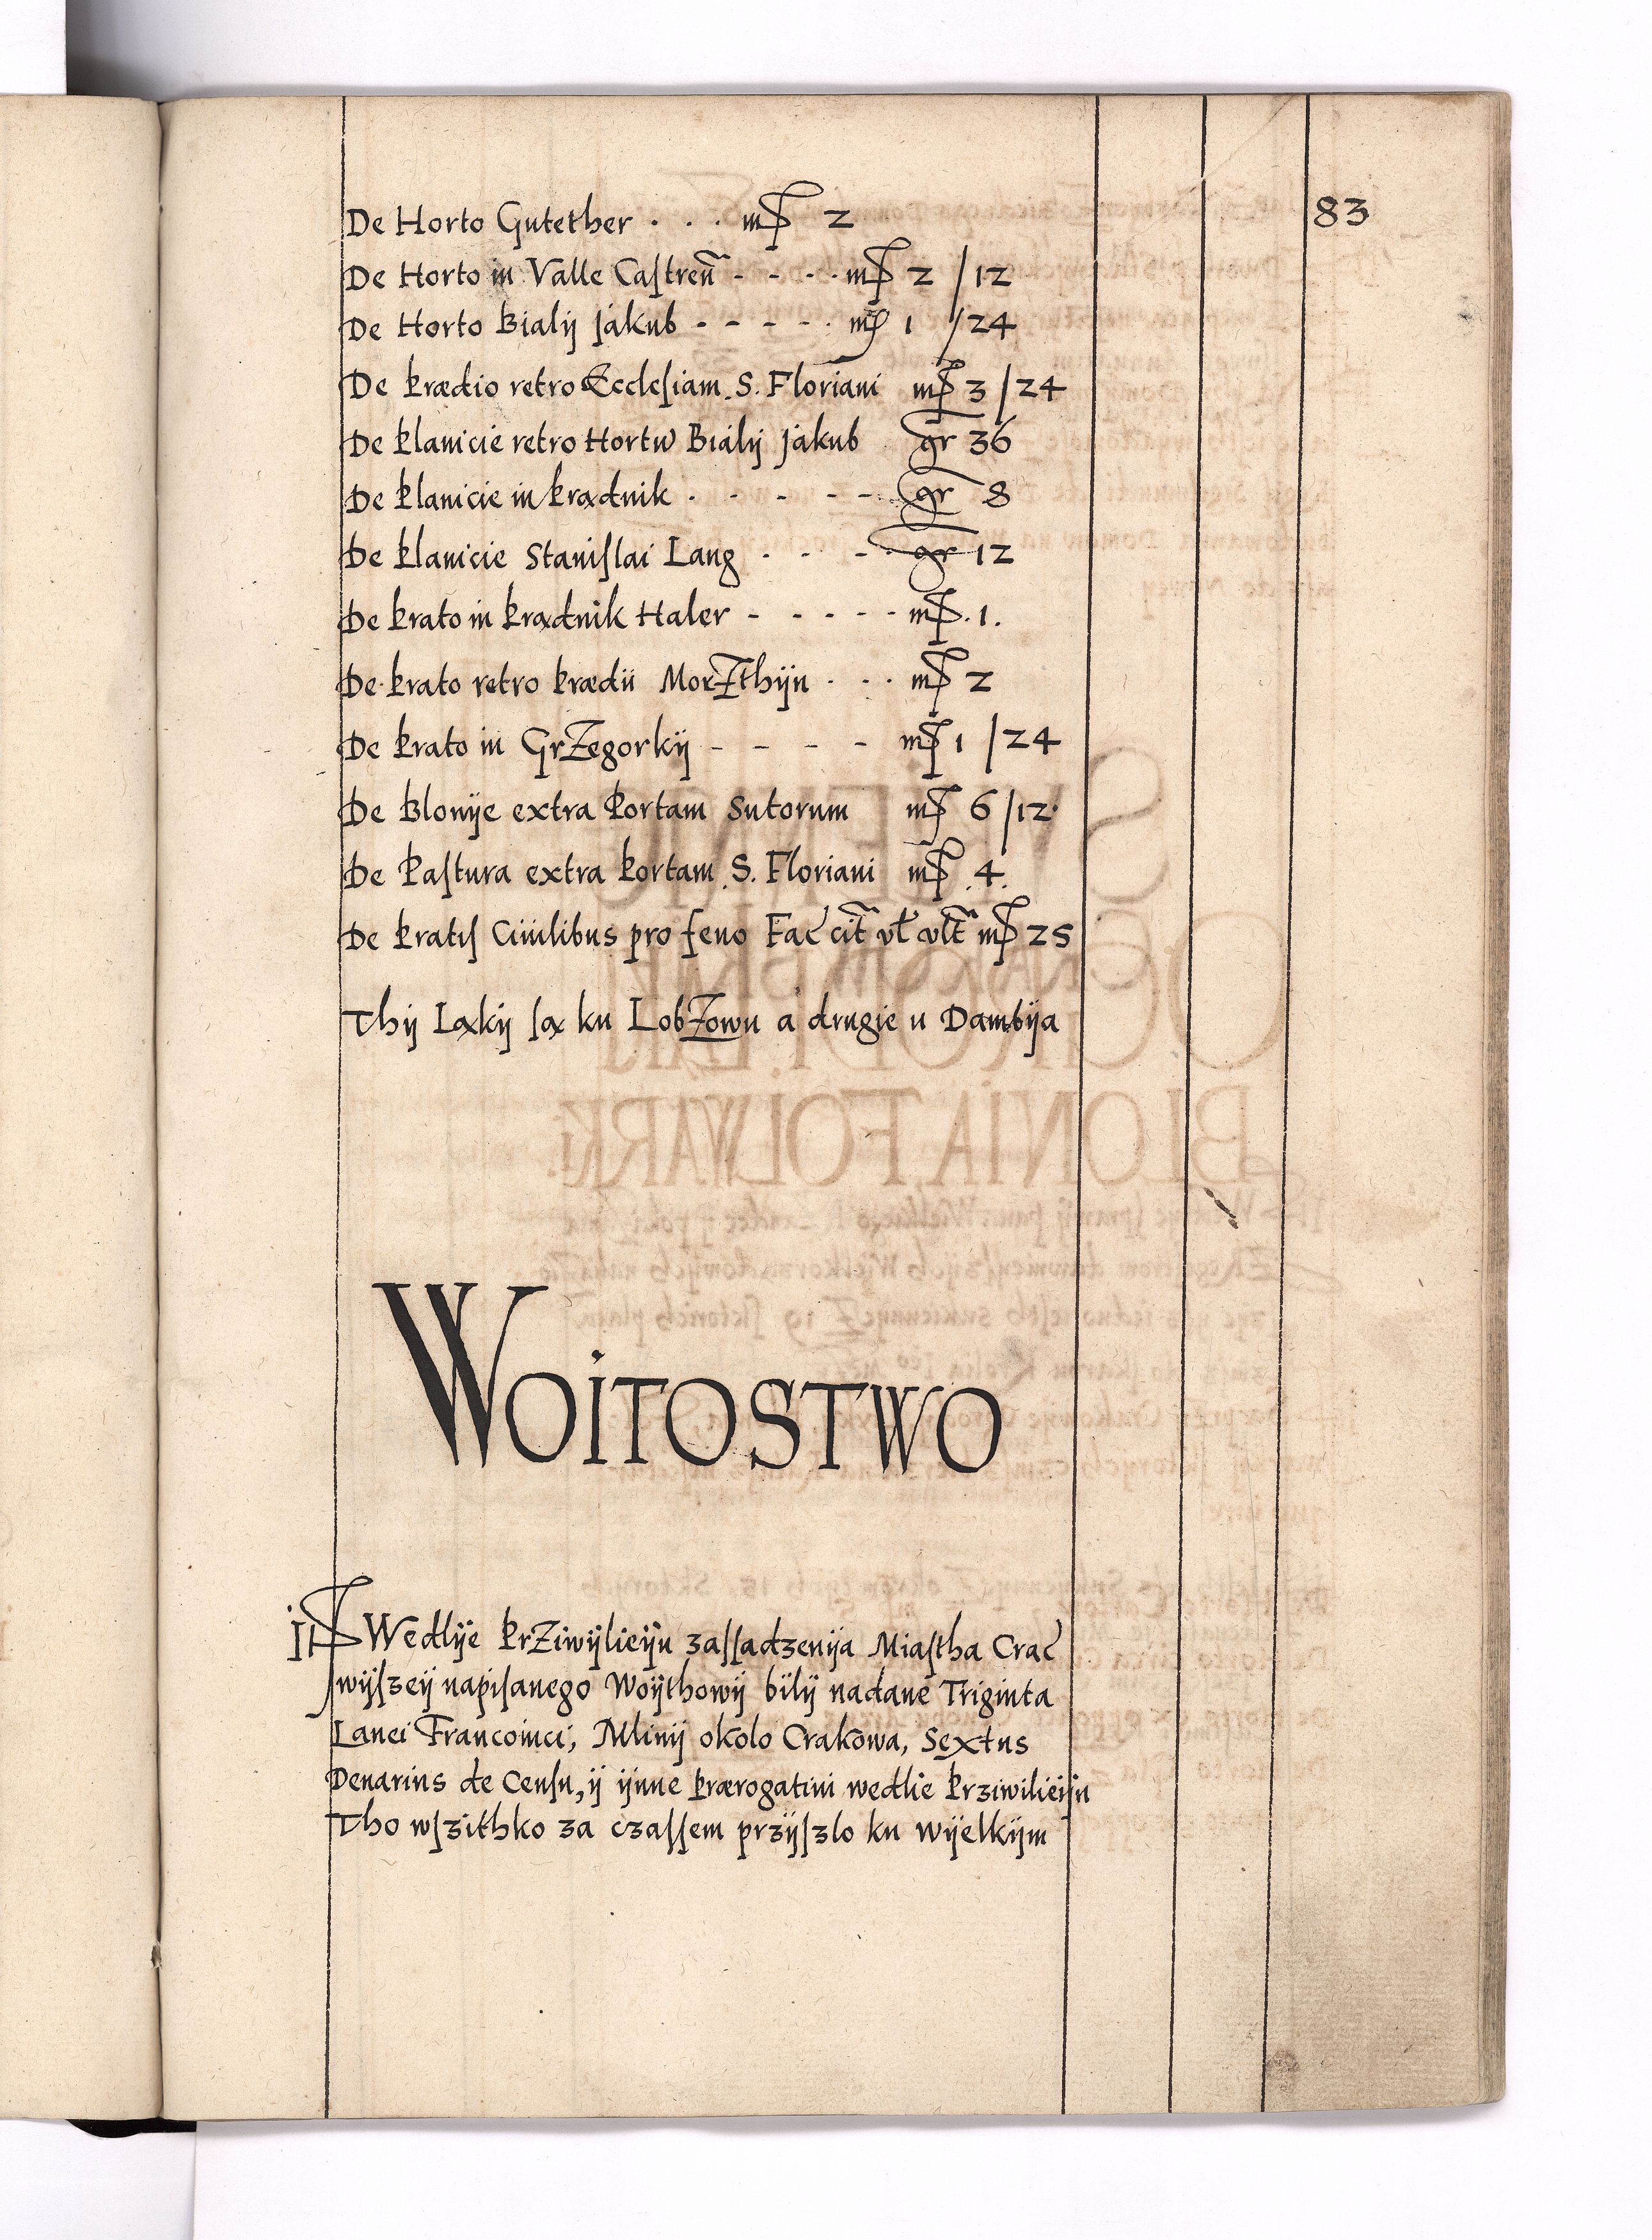 83
De Horto Gutether . . . mр 2
De Horto in Valle Castreñ - - - . mр 2 /12
De Horto Bialij Jakub - - - - . mр 1 /24
De Prædio retro Ecclesiam S. Floriani mр 3 /24
De Planicie retro Hortū Bialij Jakub gr 36
De Planicie in Prądnik . - - - - gr 8
De Planicie Stanislai Lang . - - . gr 12
De Prato in Prądnik Haler - - - - - mр. 1.
De Prato retro Prædii MorZthijn . . . mр 2
De Prato in GrZegorkij - - - - mр 1 /24
De Blonije extra Portam Sutorum mр 6 /12
De Pastura extra Portam S. Floriani mр 4.
De Pratis Ciuilibus pro feno Fac cit vl vlt mр 25
Thij Ląkij są ku LobZowu a drugie u Dambija
WOITOSTWO
It Wedlije PrZiwijlieiju zassadzenija Miastha Crac
wijszeij napisanego Woijthowij bilij nadane Triginta
Lanei Francoinci, Mlinij okolo Crakowa, Sextus
Denarius de Censu, ij ijnne Prærogatiui wedlie Prziwilieiju
Tho wszithko za czassem przijszlo ku wijelkijm